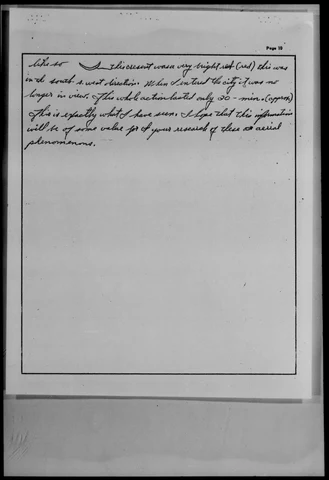 Page 10
like so In this cresent was a very bright (red) this was
in the south s. west direction. When I entered the city it was no
longer in view. This whole action lasted only 20 - min. (approx)
This is exactly what I have seen. I hope that this information
will be of some value for your research of these aerial
phenomenons.